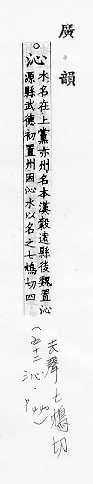 廣韻
。沁
水名在上黨亦州名本漢穀遠縣後魏置沁
源縣武德初置州因沁水以名之七鴆切四
去聲七鴆切
(五十二沁.